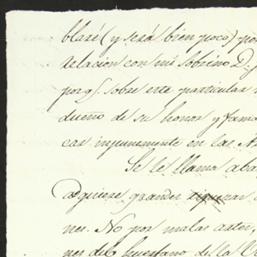 blaré (y será bien poco) po
relacion con mi sobrino D.
porq.e sobre este particular
dueño de su honor y fama
cas impunemente en las A
Se le llama aba
adquiere grandes riquezas
nes. No por malas artes,
nes del huerfano de la V